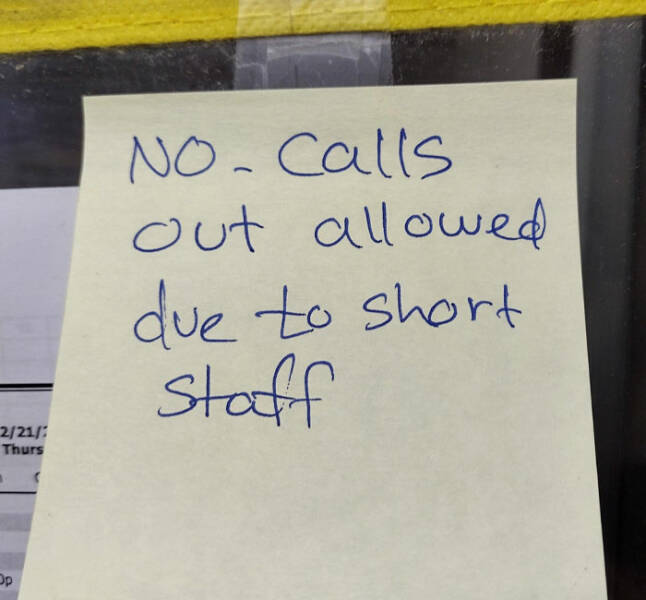 NO - Calls
out allowed
due to short
Staff
2/21/
Thurs
0p